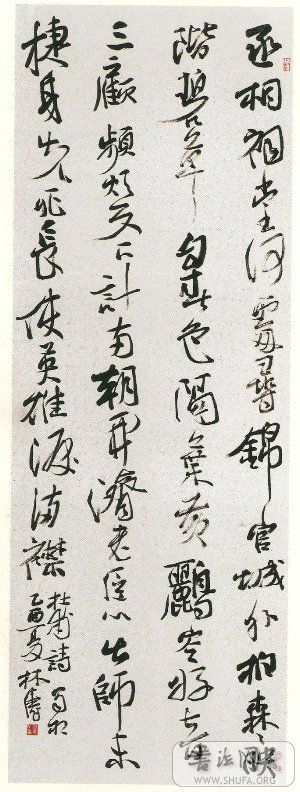 丞相祠堂何處尋錦官城外柏森々映
階碧草自春色隔葉黃鸝空好音
三顧頻煩天下計兩朝开濟老臣心出師未
捷身先死長使英雄淚滿襟
杜甫詩蜀相
乙酉夏林濤
WWW.SHUFA.ORG